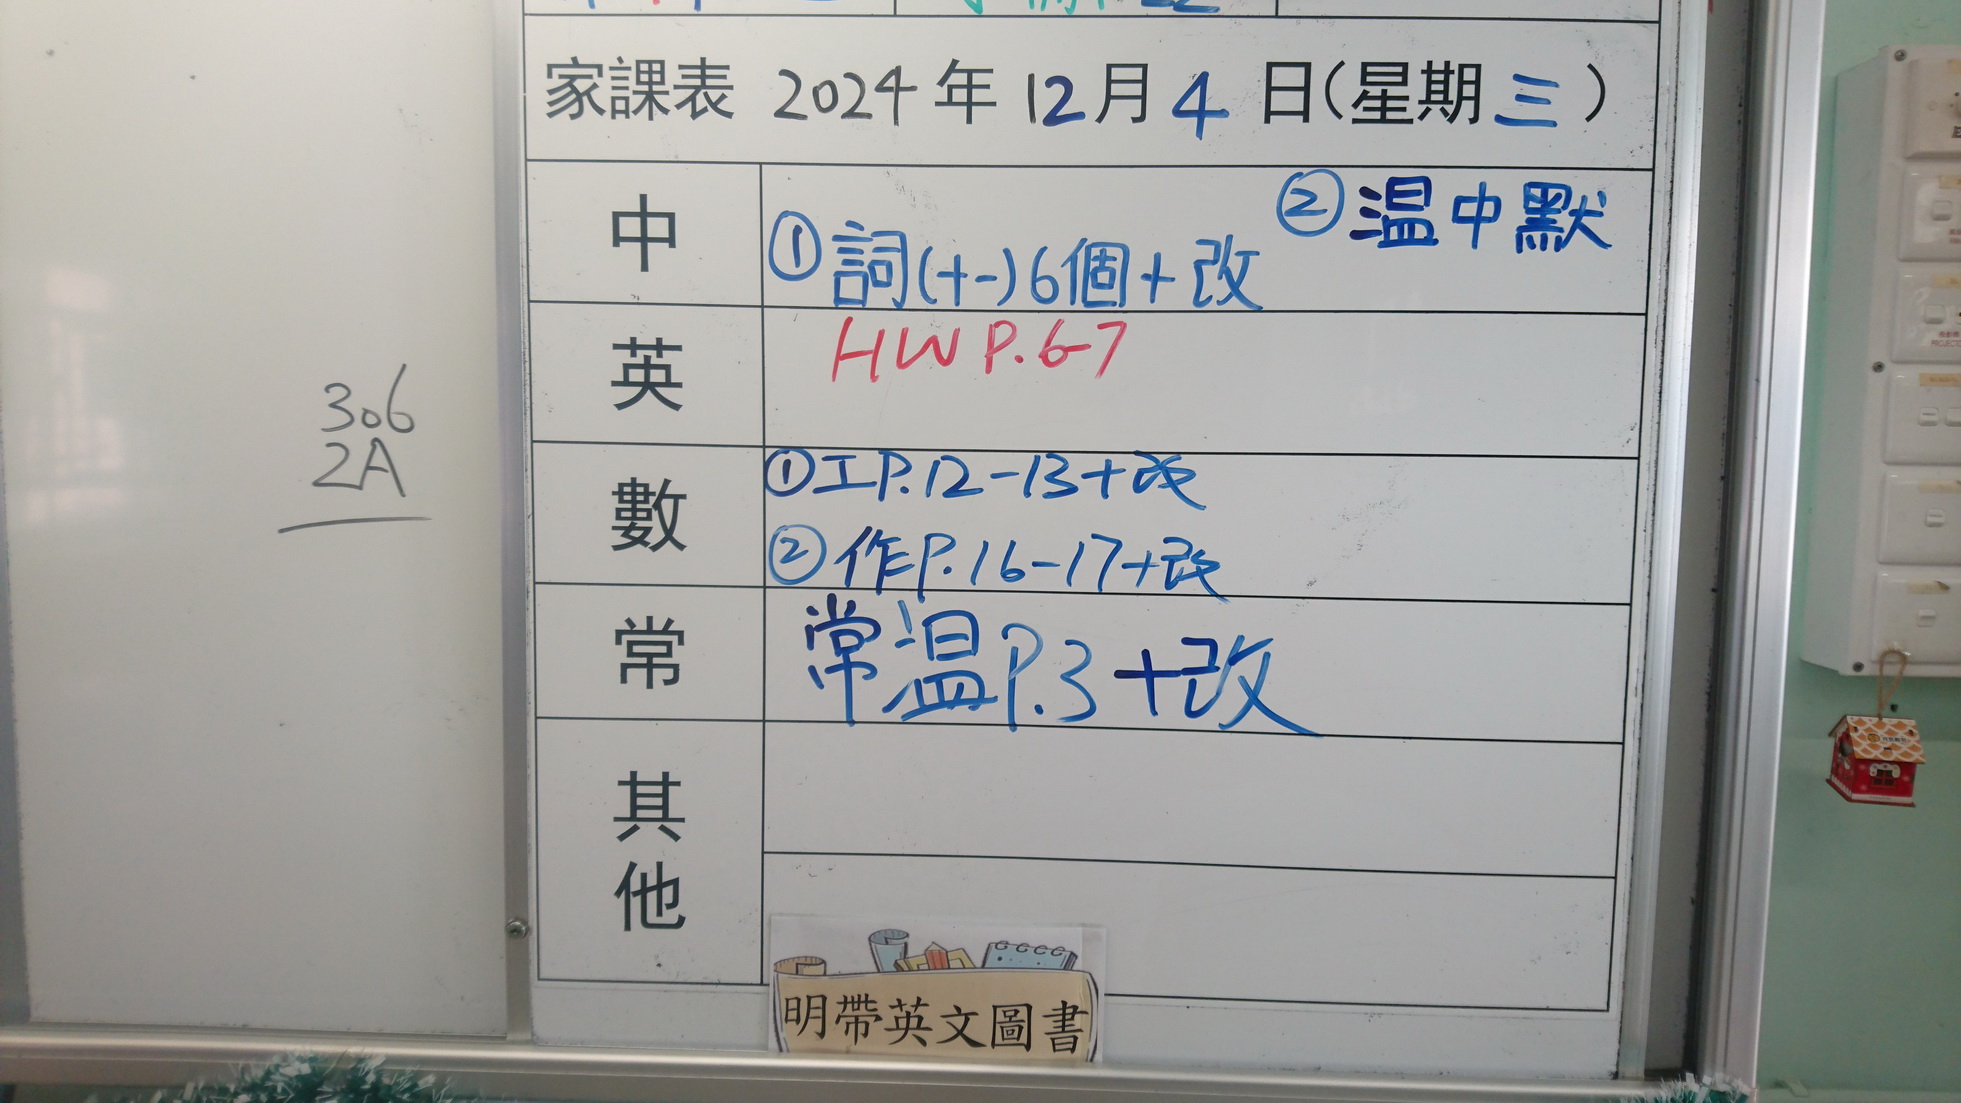 家課表 2024年12月4日(星期三)
中
①詞(十一)6個+改
②温中默
英
HW P.6-7
數
①工P.12-13+改
②作P.16-17+改
常
常温P.3+改
其他
明帶英文圖書
306
2A